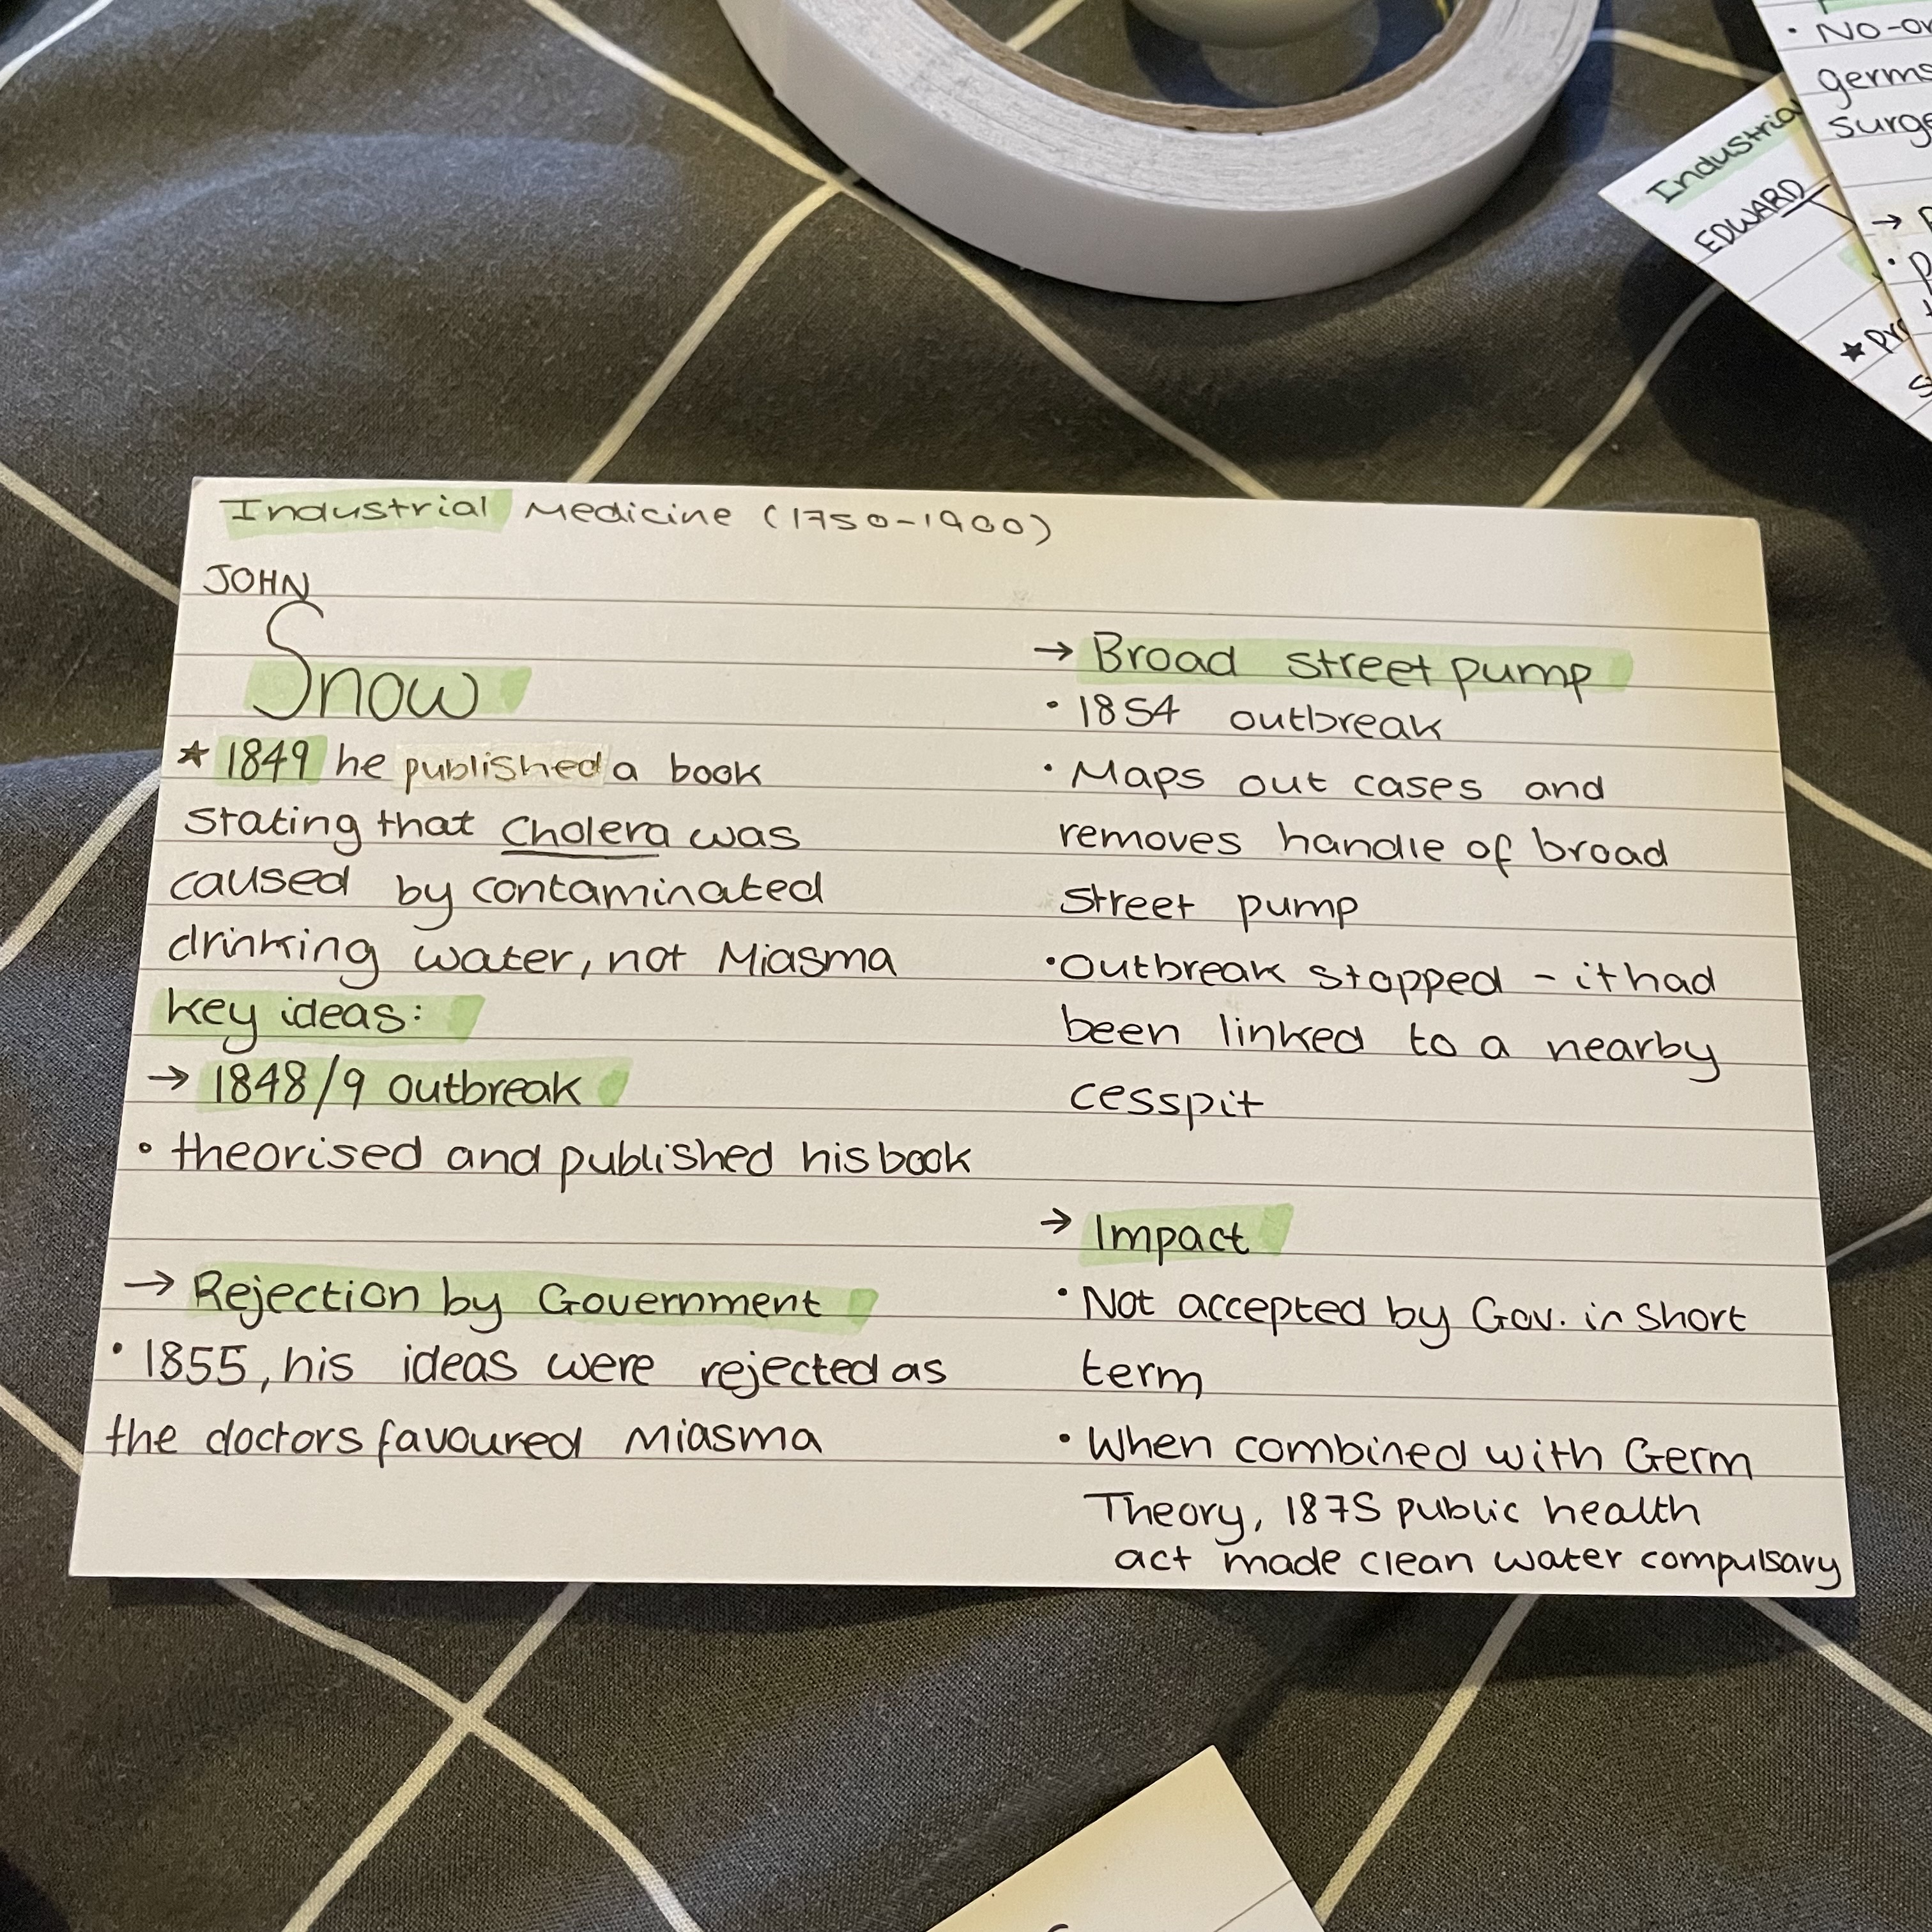 Industrial Medicine (1750-1900)
JOHN
Snow
★ 1849 he published a book
stating that cholera was
caused by contaminated
drinking water, not Miasma
key ideas:
→ 1848/9 outbreak
• theorised and published his book
→ Rejection by Government
• 1855, his ideas were rejected as
the doctors favoured Miasma
→ Broad street pump
• 1854 outbreak
• Maps out cases and
removes handle of broad
street pump
• Outbreak stopped - it had
been linked to a nearby
cesspit
→ Impact
• Not accepted by Gov. in short
term
• When combined with Germ
Theory, 1875 public health
act made clean water compulsary
• No-
germs
Industrial
EDWARD